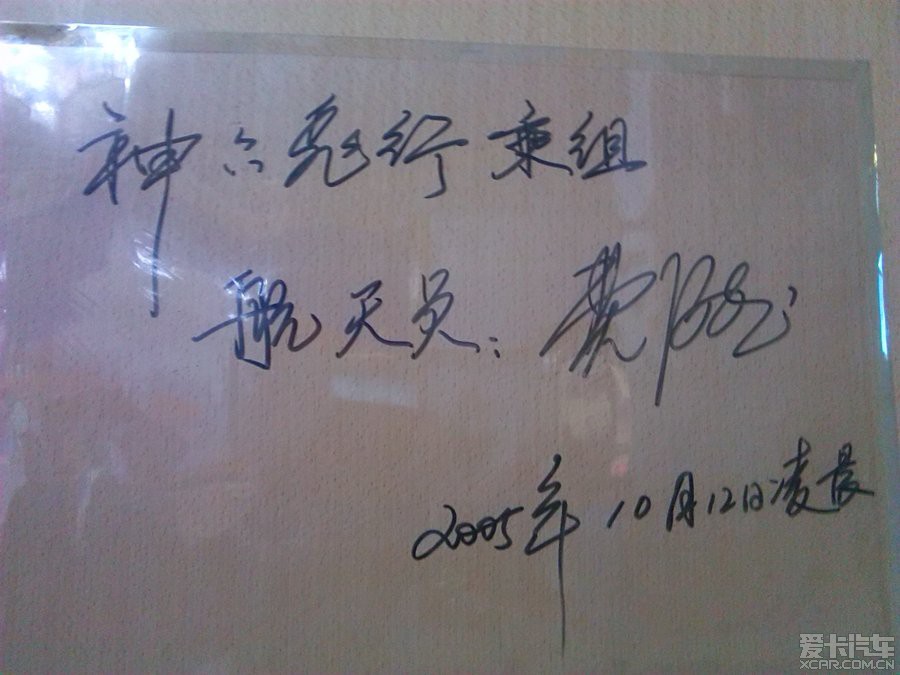 神六飞行乘组
航天员：费俊龙
2005年10月12日凌晨
爱卡汽车
XCAR.COM.CN